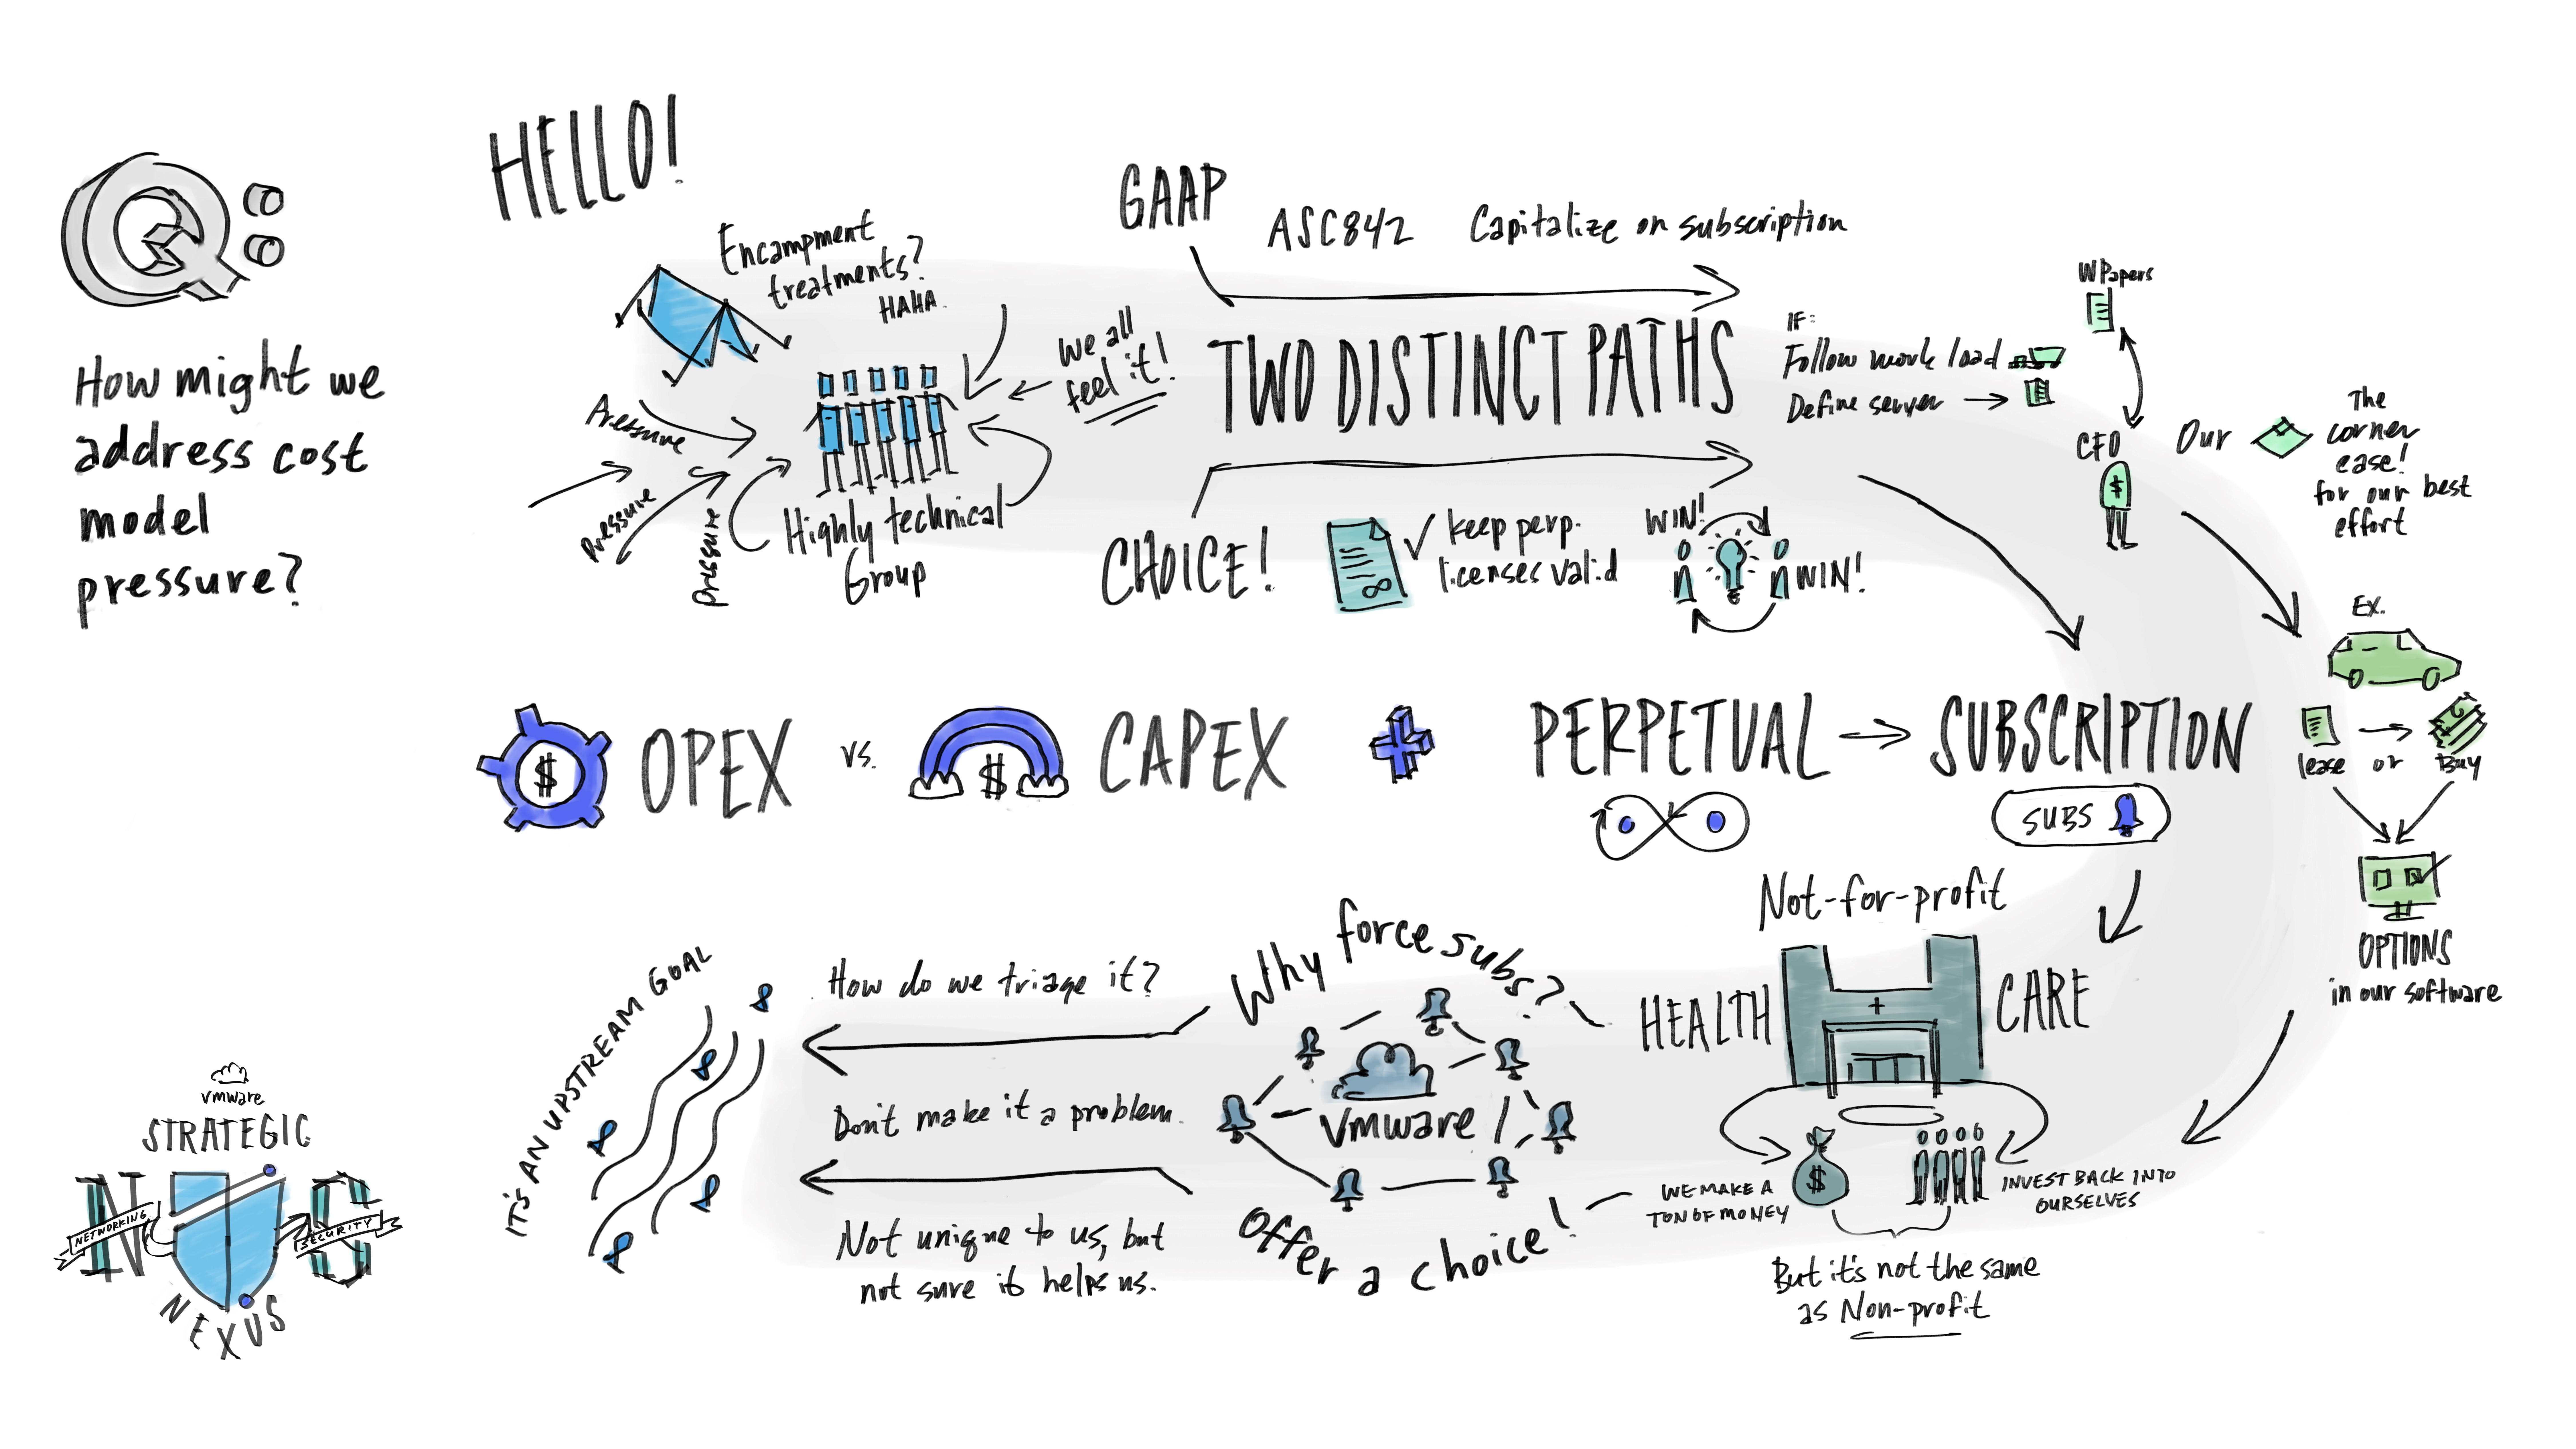 Q:
How might we
address cost
model
pressure?
HELLO!
Encampment
treatments?
HAHA.
Pressure
Pressure
Pressure
Highly technical
Group
We all
feel it!
GAAP
ASC842
Capitalize on subscription
TWO DISTINCT PATHS
CHOICE!
keep perp.
licenses valid
WIN!
WIN!
IF:
Follow work load
Define server
WPapers
CFO
$
Our
The
corner
case!
for our best
effort
EX.
lease or Buy
OPTIONS
in our software
$
OPEX
vs.
$
CAPEX
PERPETUAL
SUBSCRIPTION
SUBS
Not-for-profit
HEALTH
CARE
WE MAKE A
TON OF MONEY
$
INVEST BACK INTO
OURSELVES
But it's not the same
as Non-profit
Why force subs?
vmware
Offer a choice!
How do we triage it?
Don't make it a problem.
Not unique to us, but
not sure it helps us.
IT'S AN UPSTREAM GOAL
vmware
STRATEGIC
N S
NETWORKING
SECURITY
NEXUS